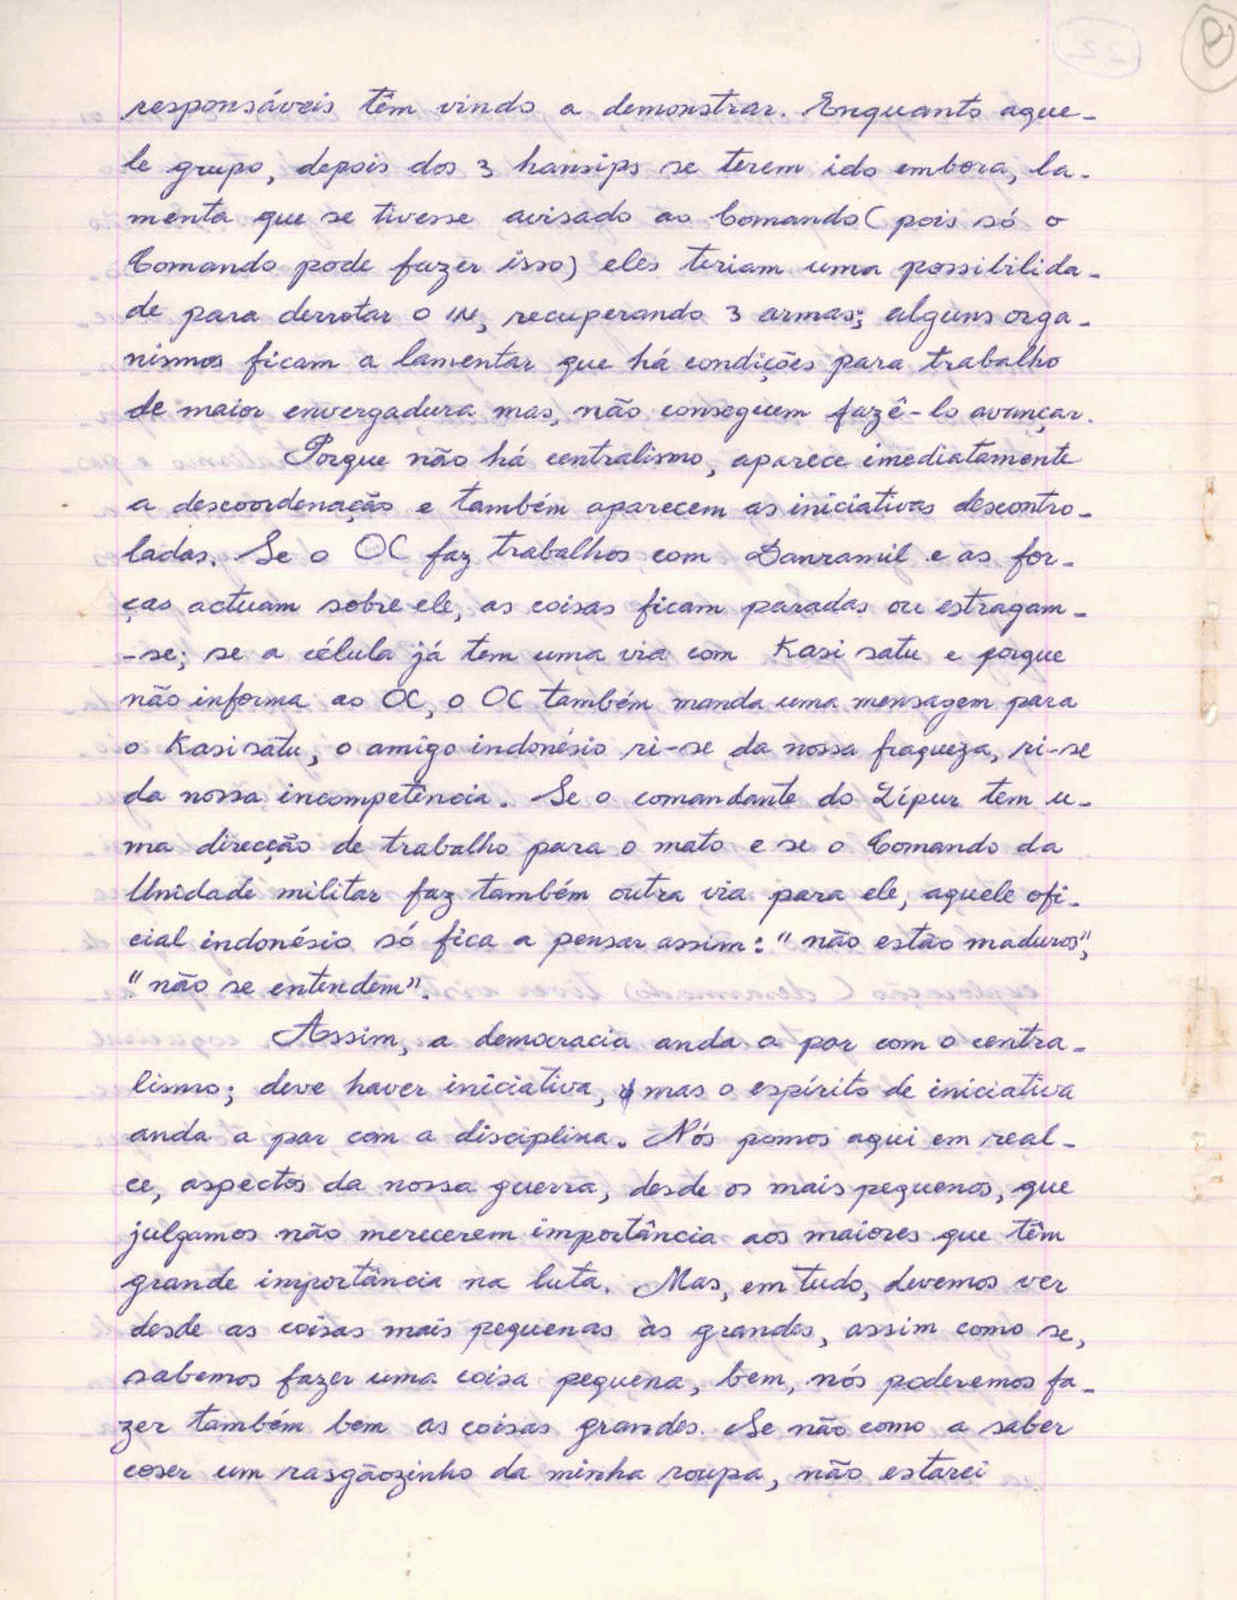 responsáveis têm vindo a demonstrar. Enquanto aque-
le grupo, depois dos 3 hansips se terem ido embora, la-
menta que se tivesse avisado ao Comando (pois só o
Comando pode fazer isso) eles teriam uma possibilida-
de para derrotar o IN, recuperando 3 armas; alguns orga-
nismos ficam a lamentar que há condições para trabalho
de maior envergadura mas, não conseguem fazê-lo avançar.
Porque não há centralismo, aparece imediatamente
a descoordenação e também aparecem as iniciativas descontro-
ladas. Se o OC faz trabalhos com Danramil e as for-
ças actuam sobre ele, as coisas ficam paradas ou estragam-
-se; se a célula já tem uma via com Kasi satu e porque
não informa ao OC, o OC também manda uma mensagem para
o Kasi satu, o amigo indonésio ri-se da nossa fraqueza, ri-se
da nossa incompetência. Se o comandante do Zípur tem u-
ma direcção de trabalho para o mato e se o Comando da
Unidade militar faz também outra via para ele, aquele ofi-
cial indonésio só fica a pensar assim: "não estão maduros",
"não se entendem".
Assim, a democracia anda a par com o centra-
lismo; deve haver iniciativa, mas o espírito de iniciativa
anda a par com a disciplina. Nós pomos aqui em real-
ce, aspectos da nossa guerra, desde os mais pequenos, que
julgamos não merecerem importância aos maiores que têm
grande importância na luta. Mas, em tudo, devemos ver
desde as coisas mais pequenas às grandes, assim como se,
sabemos fazer uma coisa pequena, bem, nós poderemos fa-
zer também bem as coisas grandes. Se não como a saber
coser um rasgãozinho da minha roupa, não estarei